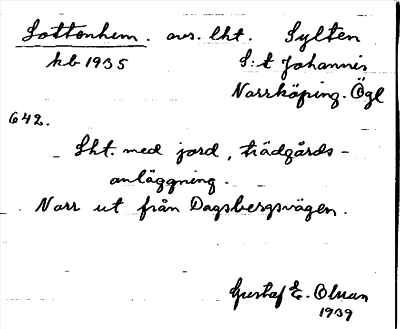 Lottenhem. avs. lht. Sylten
kb 1935 S:t Johannis
Norrköping. Ögl
642.
Lht. med jord, trädgårds-
anläggning.
Norr ut från Dagsbergsvägen.
Gustaf E. Olson
1939